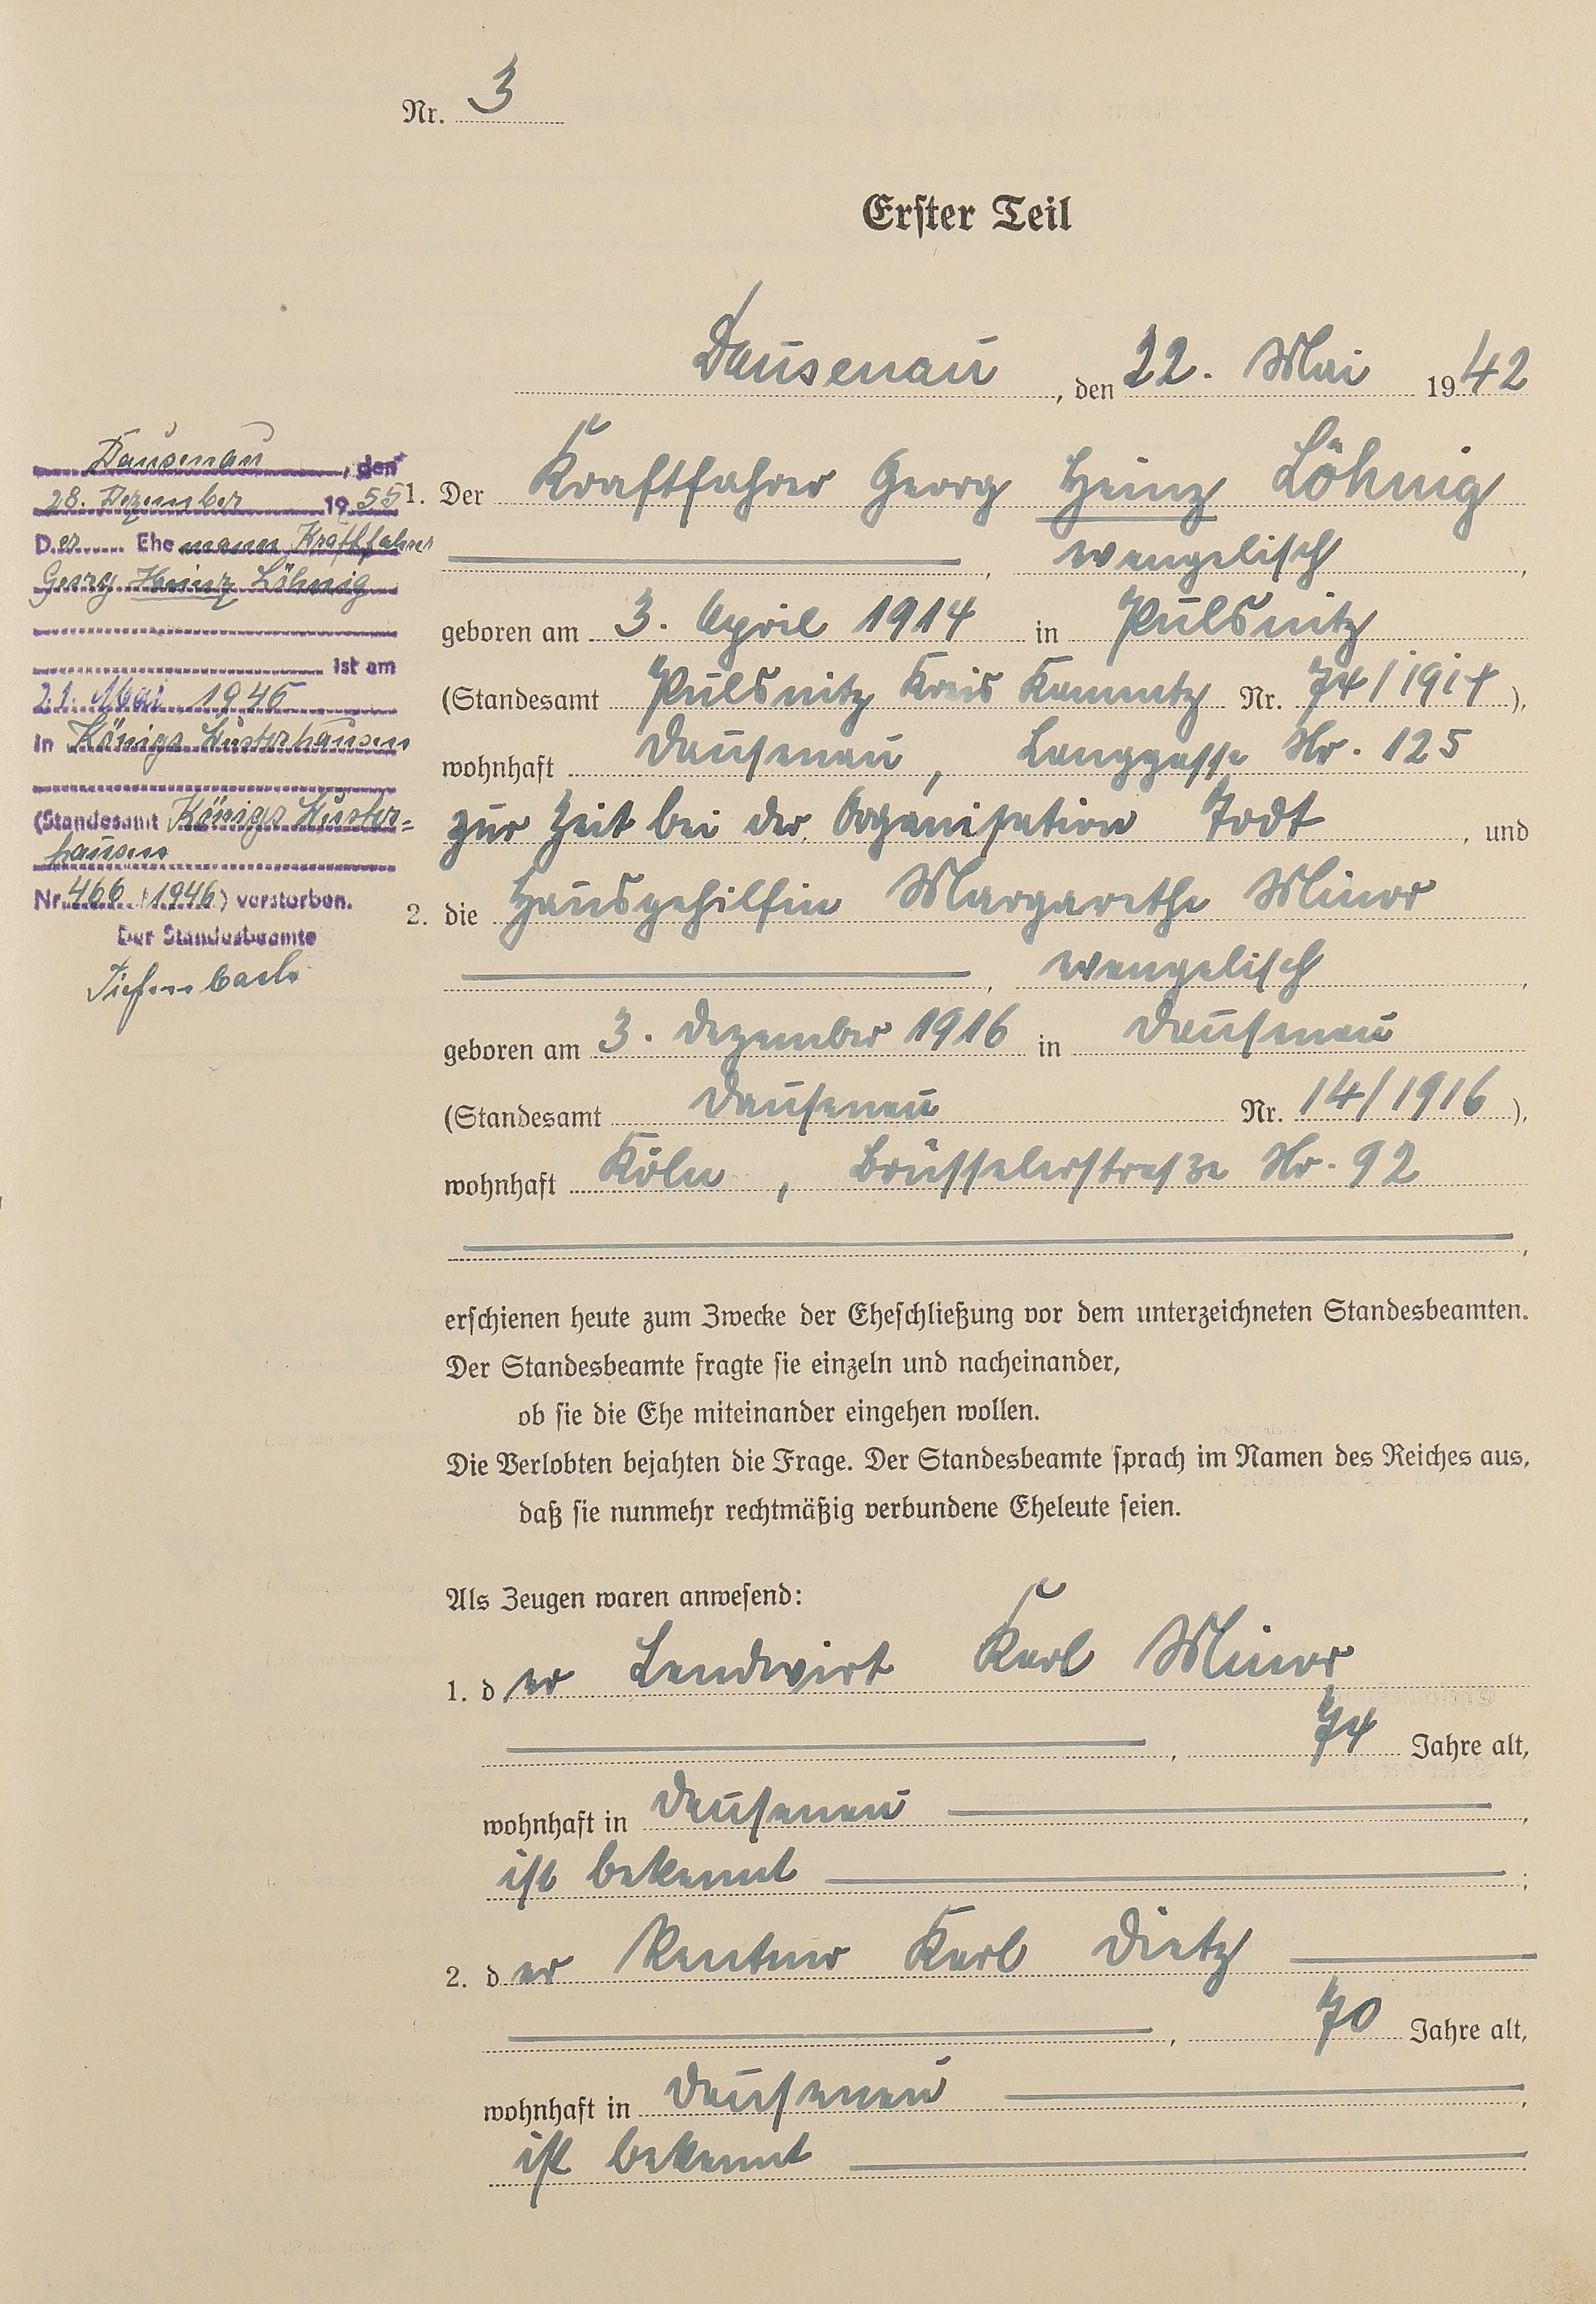 Nr. 3
Erster Teil
Dausenau, den 22. Mai 1942
1. Der Kraftfahrer Georg Heinz Löhnig
, evangelisch,
geboren am 3. April 1914 in Pulsnitz
(Standesamt Pulsnitz Kreis Kamentz Nr. 74/1914),
wohnhaft Dausenau, Langgasse Nr. 125
zur Zeit bei der Organisation Todt, und
2. die Hausgehilfin Margarethe Minor
, evangelisch,
geboren am 3. Dezember 1916 in Dausenau
(Standesamt Dausenau Nr. 14/1916),
wohnhaft Köln, Brüsselerstraße Nr. 92
,
erschienen heute zum Zwecke der Eheschließung vor dem unterzeichneten Standesbeamten.
Der Standesbeamte fragte sie einzeln und nacheinander,
ob sie die Ehe miteinander eingehen wollen.
Die Verlobten bejahten die Frage. Der Standesbeamte sprach im Namen des Reiches aus,
daß sie nunmehr rechtmäßig verbundene Eheleute seien.
Als Zeugen waren anwesend:
1. der Landwirt Karl Minor
, 74 Jahre alt,
wohnhaft in Dausenau,
ist bekannt;
2. der Rentner Karl Dietz
, 70 Jahre alt,
wohnhaft in Dausenau,
ist bekannt.
Dausenau, den
28. Dezember 1955
Der Ehemann Kraftfahrer
Georg Heinz Löhnig
ist am
21. Mai 1946
in Königs Wusterhausen
(Standesamt Königs Wuster-
hausen
Nr. 466/1946) verstorben.
Der Standesbeamte
Tiefenbach